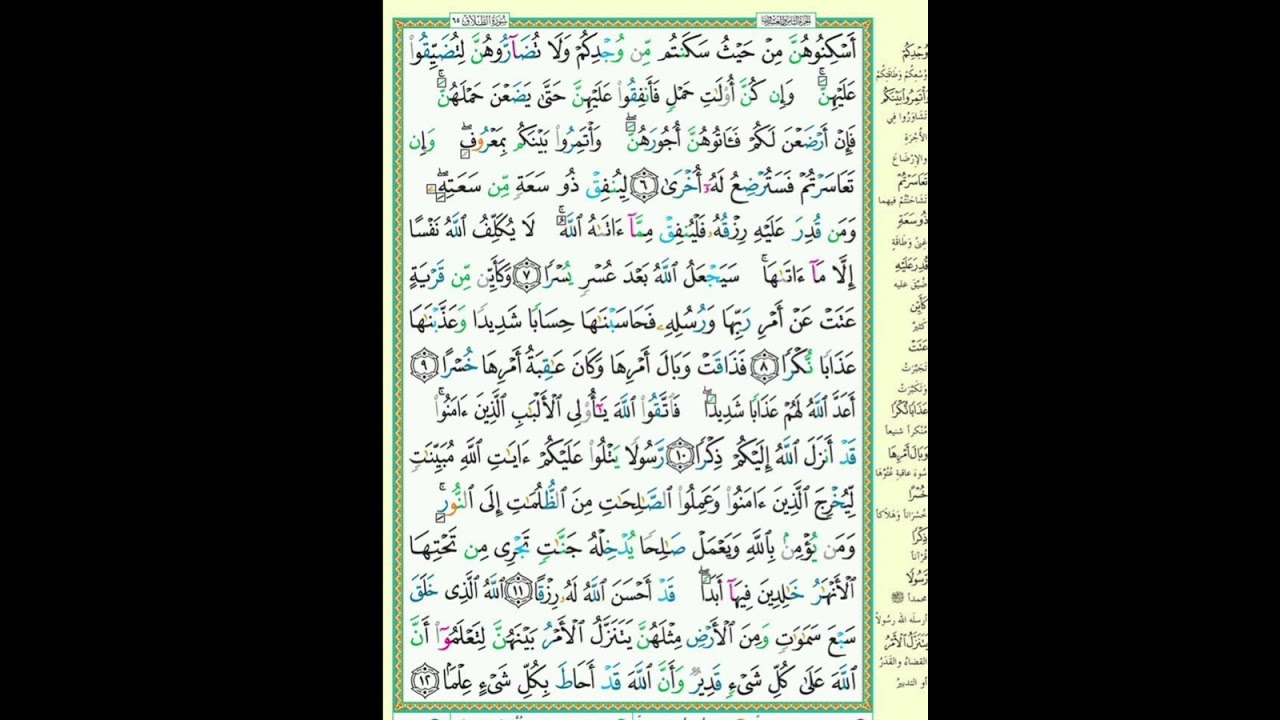 سُورَةُ الطَّلَاقِ ٦٥
الجزء الثامن والعشرون
أَسْكِنُوهُنَّ مِنْ حَيْثُ سَكَنتُم مِّن وُجْدِكُمْ وَلَا تُضَآرُّوهُنَّ لِتُضَيِّقُوا۟
عَلَيْهِنَّ ۚ وَإِن كُنَّ أُو۟لَٰتِ حَمْلٍ فَأَنفِقُوا۟ عَلَيْهِنَّ حَتَّىٰ يَضَعْنَ حَمْلَهُنَّ ۚ
فَإِنْ أَرْضَعْنَ لَكُمْ فَـَٔاتُوهُنَّ أُجُورَهُنَّ ۖ وَأْتَمِرُوا۟ بَيْنَكُم بِمَعْرُوفٍ ۖ وَإِن
تَعَاسَرْتُمْ فَسَتُرْضِعُ لَهُۥٓ أُخْرَىٰ ٦ لِيُنفِقْ ذُو سَعَةٍ مِّن سَعَتِهِۦ ۖ
وَمَن قُدِرَ عَلَيْهِ رِزْقُهُۥ فَلْيُنفِقْ مِمَّآ ءَاتَىٰهُ ٱللَّهُ ۚ لَا يُكَلِّفُ ٱللَّهُ نَفْسًا
إِلَّا مَآ ءَاتَىٰهَا ۚ سَيَجْعَلُ ٱللَّهُ بَعْدَ عُسْرٍ يُسْرًا ٧ وَكَأَيِّن مِّن قَرْيَةٍ
عَتَتْ عَنْ أَمْرِ رَبِّهَا وَرُسُلِهِۦ فَحَاسَبْنَٰهَا حِسَابًا شَدِيدًا وَعَذَّبْنَٰهَا
عَذَابًا نُّكْرًا ٨ فَذَاقَتْ وَبَالَ أَمْرِهَا وَكَانَ عَٰقِبَةُ أَمْرِهَا خُسْرًا ٩
أَعَدَّ ٱللَّهُ لَهُمْ عَذَابًا شَدِيدًا ۖ فَٱتَّقُوا۟ ٱللَّهَ يَٰٓأُو۟لِى ٱلْأَلْبَٰبِ ٱلَّذِينَ ءَامَنُوا۟ ۚ
قَدْ أَنزَلَ ٱللَّهُ إِلَيْكُمْ ذِكْرًا ١٠ رَّسُولًا يَتْلُوا۟ عَلَيْكُمْ ءَايَٰتِ ٱللَّهِ مُبَيِّنَٰتٍ
لِّيُخْرِجَ ٱلَّذِينَ ءَامَنُوا۟ وَعَمِلُوا۟ ٱلصَّٰلِحَٰتِ مِنَ ٱلظُّلُمَٰتِ إِلَى ٱلنُّورِ ۚ
وَمَن يُؤْمِنۢ بِٱللَّهِ وَيَعْمَلْ صَٰلِحًا يُدْخِلْهُ جَنَّٰتٍ تَجْرِى مِن تَحْتِهَا
ٱلْأَنْهَٰرُ خَٰلِدِينَ فِيهَآ أَبَدًا ۖ قَدْ أَحْسَنَ ٱللَّهُ لَهُۥ رِزْقًا ١١ ٱللَّهُ ٱلَّذِى خَلَقَ
سَبْعَ سَمَٰوَٰتٍ وَمِنَ ٱلْأَرْضِ مِثْلَهُنَّ يَتَنَزَّلُ ٱلْأَمْرُ بَيْنَهُنَّ لِتَعْلَمُوٓا۟ أَنَّ
ٱللَّهَ عَلَىٰ كُلِّ شَىْءٍ قَدِيرٌ وَأَنَّ ٱللَّهَ قَدْ أَحَاطَ بِكُلِّ شَىْءٍ عِلْمًۢا ١٢
وُجْدِكُمْ
وُسْعِكُمْ وَطَاقَتِكُمْ
وَأْتَمِرُوا بَيْنَكُم
تَشَاوَرُوا فِي
الأُجْرَةِ
والإرْضَاعِ
تَعَاسَرْتُمْ
تَشَاحَنْتُمْ فيهما
ذُو سَعَةٍ
غِنًى وَطَاقَةٍ
قُدِرَ عَلَيْهِ
ضُيِّقَ عليه
كَأَيِّن
كَثيرٌ
عَتَتْ
تَجَبَّرَتْ
وَتَكَبَّرَتْ
عَذَابًا نُّكْرًا
مُنْكراً شنيعاً
وَبَالَ أَمْرِهَا
سُوءَ عاقبةِ عُتُوِّهَا
خُسْرًا
خُسْرَاناً وَهَلَاكاً
ذِكْرًا
قُرْآناً
رَّسُولًا
محمداً ﷺ
أرسلَه الله رسُولاً
يَتَنَزَّلُ الْأَمْرُ
القَضَاءُ وَالقَدَرُ
أو التدبيرُ